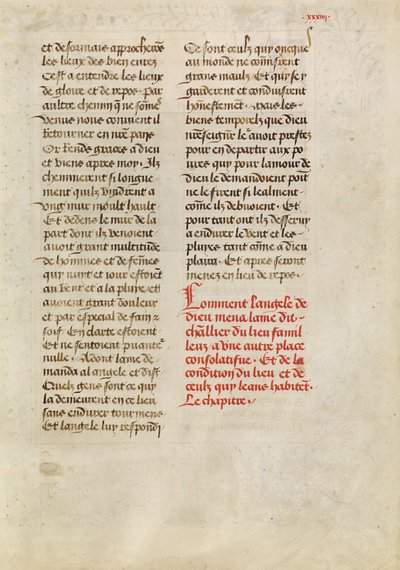 xxxiiij
et desormais approcherõs
les lieux des bien eurez
Cest a entendre les lieux
de gloire et de repos. par
aultre chemin q̃ ne somẽ
venue nous convient il
retourner en nr̃e pays
Or rende graces a dieu
et viens apres moy. Ilz
cheminerent si longue-
ment quilz vindrent a
vng mur moult hault
Et dedens le mur de la
part dont ilz venoient
avoit grant multitude
de hommes et de fẽmes
qui nuit et iour estoiẽt
au vent et a la pluye et
avoient grant douleur
et par especial de faim z
soif. En clarte estoient
Et ne sentoient puante᷑
nulle. Adont lame de-
manda al angele et dist
Quelz gens sont ce qui
la demeurent en ce lieu
sans endurer tourmens
Et langele luy respondi
Ce sont ceulz quy oncque
au monde ne commisrent
grans maulz Et qui se y
garderent et conduisirent
honnestement. mais les
biens temporelz que dieu
nr̃e seignr̃ le avoit prestez
pour en departir aux po
vres quy pour lamour de
dieu le demandoient poĩt
ne le firent si lealment
cõme ilz debuoient. Et
pour tant ont ilz desseruy
a endurer le vent et les
pluyes tant cõme a dieu
plaira. Et apres seront
menez en lieu de repos.
Comment langele de
dieu mena lame du
chl̃lier du lieu famil
leux a vne autre place
consolatifue. Et de la
condition du lieu et de
ceulz quy leans habitẽt.
Le chapitre.